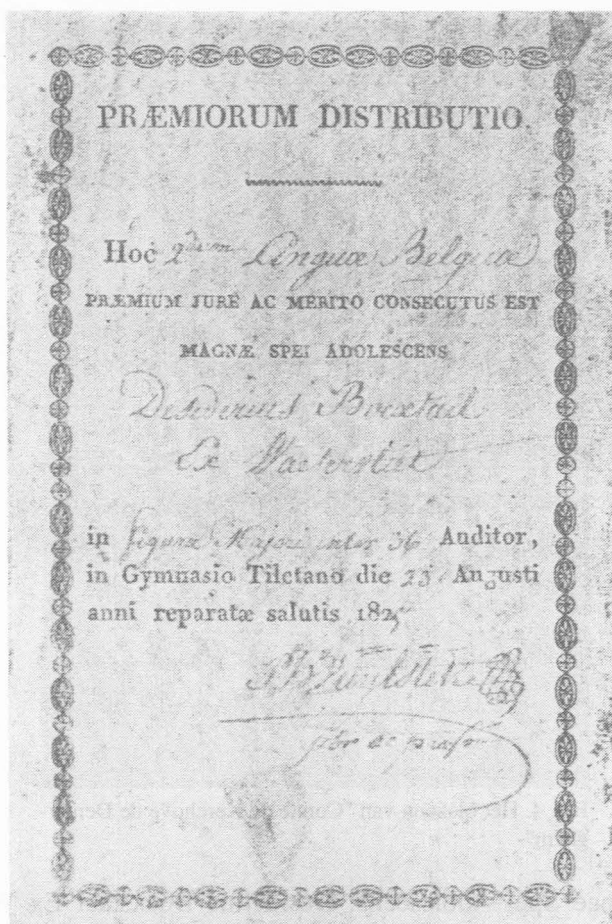 PRÆMIORUM DISTRIBUTIO.
Hoc 2dum Linguæ Belgicæ
PRÆMIUM JURE AC MERITO CONSECUTUS EST
MAGNÆ SPEI ADOLESCENS
Desiderius
Ex Watervliet
in figura Majori inter 36 Auditor,
in Gymnasio Tiletano die 23 Augusti
anni reparatæ salutis 1825